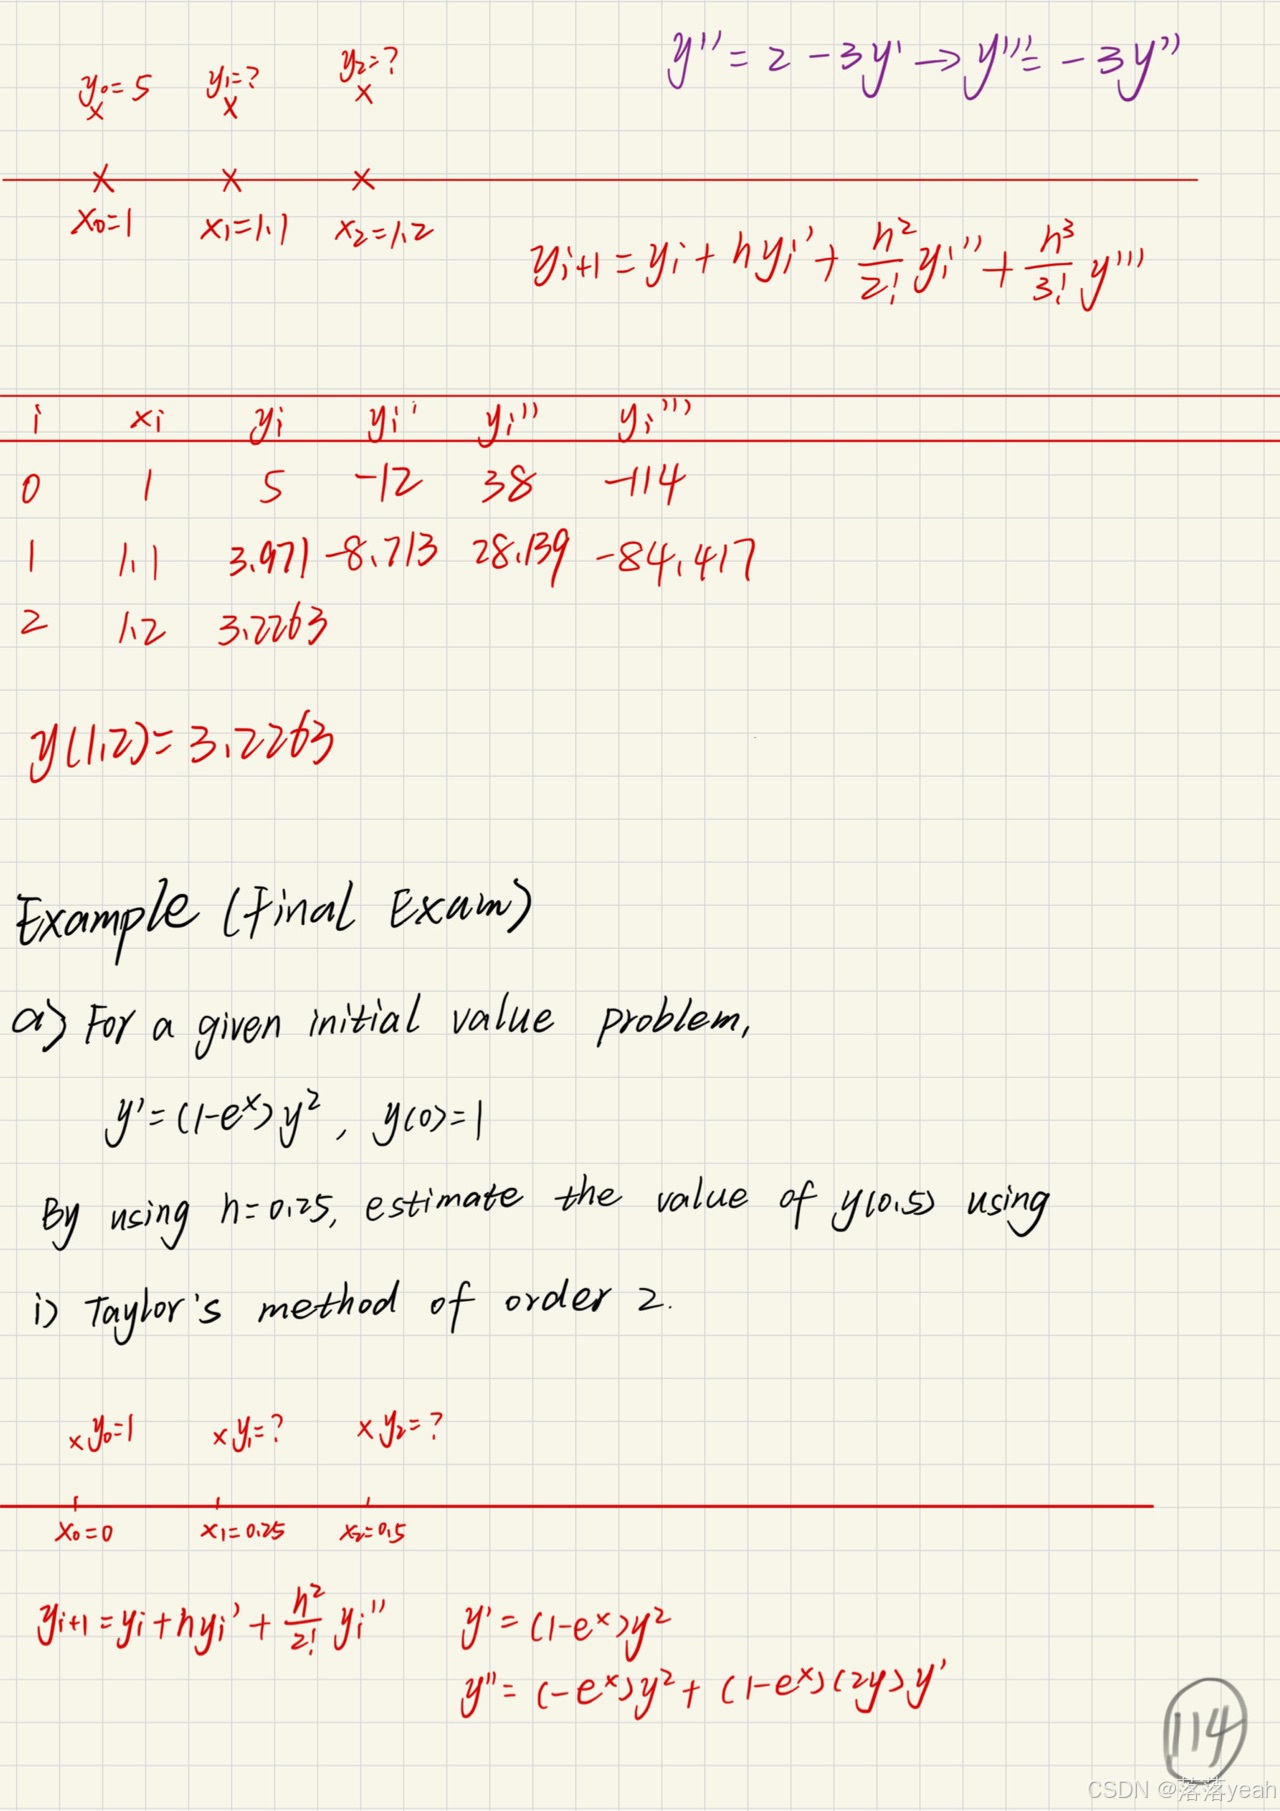 y₀=5 y₁=? y₂=? y''=2-3y' → y'''=-3y''
x x x
x₀=1 x₁=1.1 x₂=1.2
yᵢ₊₁=yᵢ+hyᵢ'+h²/2! yᵢ''+h³/3! y'''
i xᵢ yᵢ yᵢ' yᵢ'' yᵢ'''
0 1 5 -12 38 -114
1 1.1 3.971 -8.713 28.139 -84.417
2 1.2 3.2263
y(1.2)=3.2263
Example (Final Exam)
a) For a given initial value problem,
y'=(1-eˣ)y², y(0)=1
By using h=0.25, estimate the value of y(0.5) using
i) Taylor's method of order 2.
x y₀=1 x y₁=? x y₂=?
x₀=0 x₁=0.25 x₂=0.5
yᵢ₊₁=yᵢ+hyᵢ'+h²/2! yᵢ'' y'=(1-eˣ)y²
y''=(-eˣ)y²+(1-eˣ)(2y)y'
114
CSDN @落落yeah